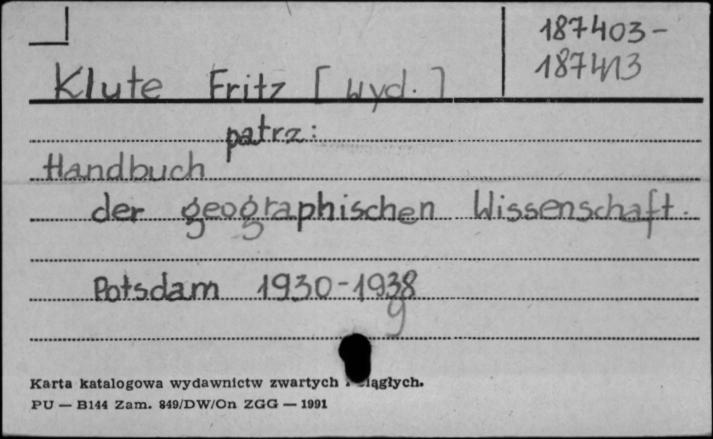 187403-
187413
Klute Fritz [wyd.]
patrz:
Handbuch
der geographischen Wissenschaft.
Potsdam 1930-1938
9
Karta katalogowa wydawnictw zwartych
PU — B144 Zam. 849/DW/On ZGG — 1991